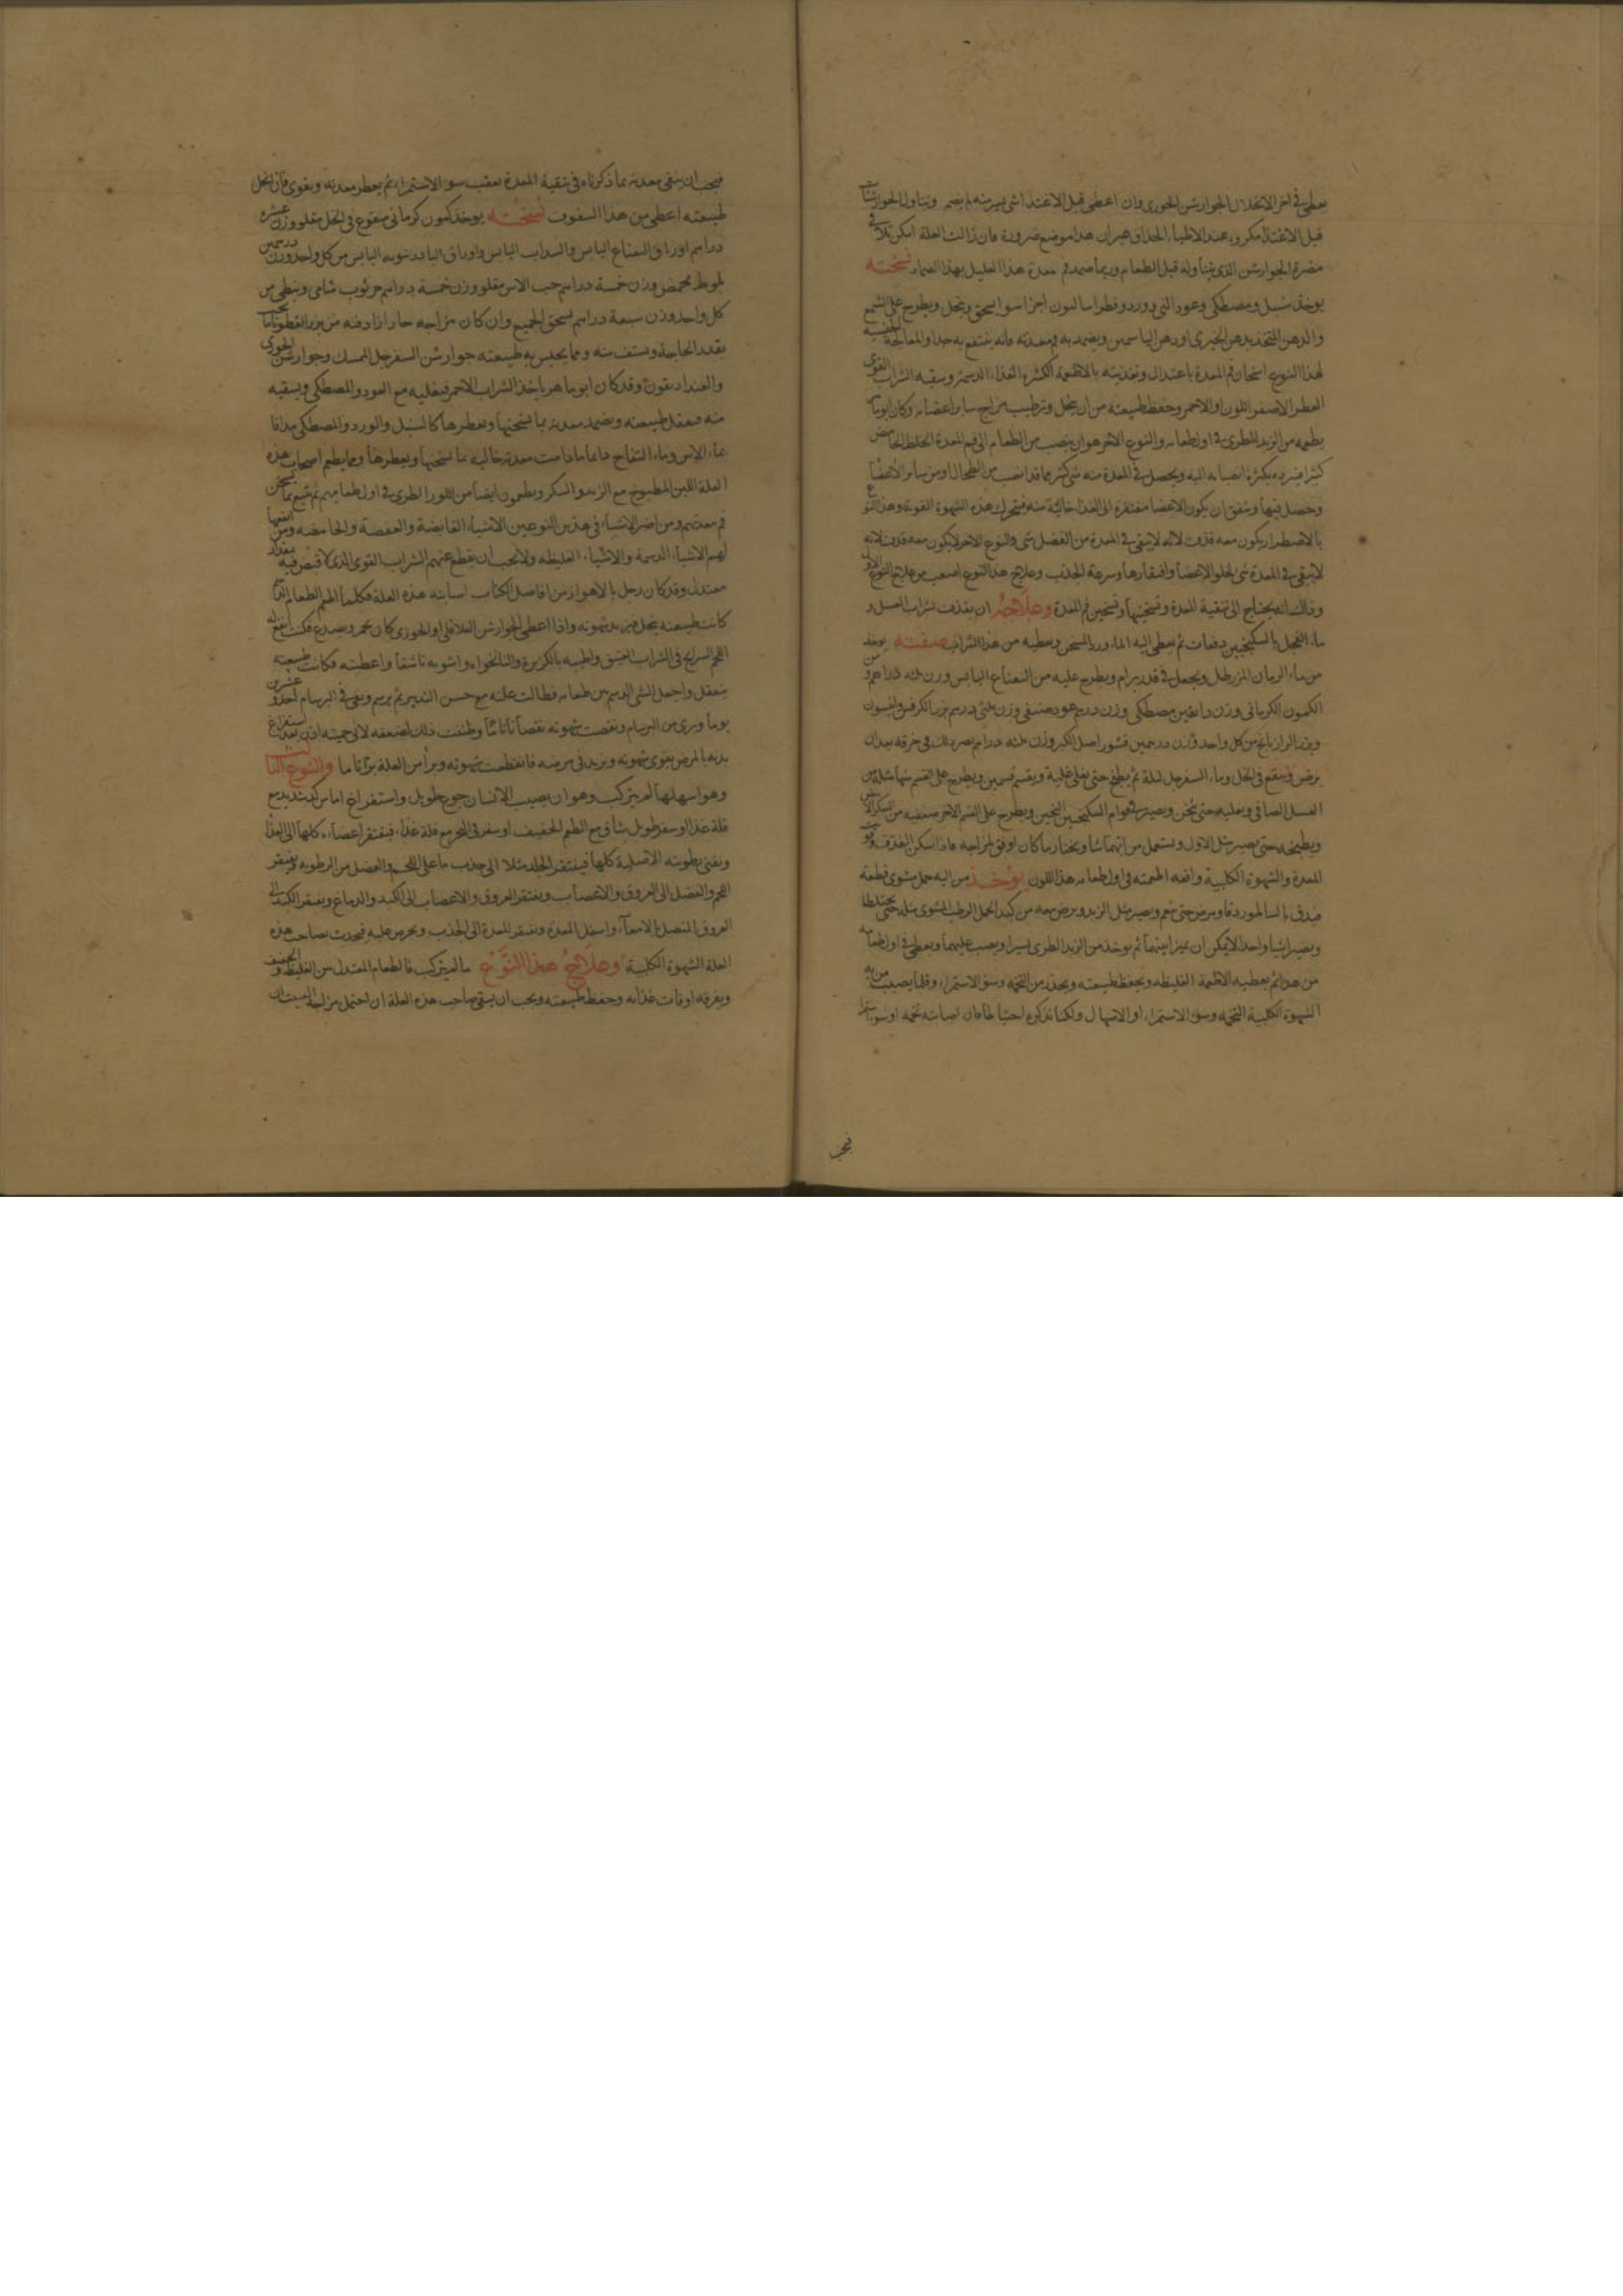 يعطى فى اخر الانحلال الجوارشن الخوزى وان اعطى قبل الاغتذا شى يسير منه لم يضر وتناول الجوارشنات
قبل الاغتذا مكروه عند الاطباء الحذاق غير ان هذا موضع ضرورة فان زالت العلة امكن تلافى
مضرة الجوارشن الذى يتناوله قبل الطعام وربما ضمد فم معدة هذا العليل بهذا الضماد نسخته
يوخذ سنبل ومصطكى وعود النى وورد اجزا سوا يسحق وينخل ويطرح على الشمع
والدهن المتخذ بدهن الخيرى او دهن الياسمين ويضمد به فم معدته فانه ينتفع به جدا والمعالجة
لهذا النوع اسخان فم المعدة باعتدال وتغذيته بالاطعمة الكثيرة الغذاء الدسمة وسقيه الشراب القوى
العطر الاصفر اللون او الاحمر وحفظ طبيعته من ان ينحل وترطيب مزاج ساير اعضائه وكان ابو ماهر
يطعمه من الزبد الطرى فى اول طعامه والنوع الاخر هو ان ينصب من الطعام الى فم المعدة الخلط الحامض
كثيرا فيبرده بكثرة انصبابه اليه ويحصل فى المعدة منه شى كثير مما قد انصب من الطحال او من ساير الاعضا
وحصل فيها ويتفق ان يكون الاعضا مفتقرة الى الغذا خالية منه فتتحرك هذه الشهوة القوية وهذا النوع
بالاضطرار يكون معه قذف لانه لا يبقى فى المعدة من الفضل شى والنوع الاخر لا يكون معه قذف لانه
لا يبقى فى المعدة شى لخلو الاعضا وافتقارها وسرعة الجذب وعلاج هذا النوع اصعب من علاج النوع الاول
وذلك انه يحتاج الى تنقية المعدة وتسخينها وتسخين فم المعدة وعلاجه ان يقذف بشراب العسل و
ماء الفجل بالسكنجبين دفعات ثم يعطى اليه الماورد السخن ويعطيه من هذا الشراب صفته يوخذ
من ماء الرمان المز رطل ويجعل فى قدر برام ويطرح عليه من النعناع اليابس وزن ثلثه دراهم ومن
الكمون الكرمانى وزن دانقين مصطكى وزن درهم عود صنفى وزن ثلثى درهم بزر الكرفس وانيسون
وبزر الرازيانج من كل واحد وزن درهمين قشور اصل الكبر وزن ثلثه دراهم يصر ذلك فى خرقه بعد ان
يرض وينقع فى الخل وماء السفرجل ليلة ثم يطبخ حتى يغلى غلية ويقسم قسمين ويطرح على القسم منها مثله من
العسل الصافى ويغليه حتى يثخن ويصير فى قوام السكنجبين الثخين ويطرح على القسم الاخر ضعفيه من السكر الابيض
ويطبخه حتى يصير مثل الاول ويستعمل من ايهما شا ويختار ما كان اوفق لمزاجه فاذا سكن القذف وقويت
المعدة والشهوة الكلبية وافه اطعمته فى اول طعامه هذا اللون يوخذ من اليه حمل مشوى قطعة
فيدق بالساطور دقا ويمرس حتى ينعم ويصير مثل الزبد ويرض معه من كبد الحمل الرطب المشوى مثله حتى يختلطا
ويصيرا شيا واحدا لا يمكن ان يميز بينهما ثم يوخذ من الزبد الطرى يسيرا ويصب عليهما ويعطى فى اول طعامه
من هذا ثم يعطيه الاطعمة الغليظه ويحفظ طبيعته ويحذر من التخمة وسو الاستمراء وقلما يصيب من به
الشهوة الكلبية التخمه وسو الاستمراء او الانهال ولكنا نذكره احتياطا فان اصابته تخمه او سو استمرا
فيجب
فيجب ان ينقى معدته بما ذكرناه فى تنقية المعدة بعقب سو الاستمراء ثم يعطر معدته ويقوى فان انحل
طبيعته اعطى من هذا السفوف نسخته يوخذ كمون كرمانى منقوع فى الخل مقلو وزن عشرة
دراهم اوراق النعناع اليابس والسداب اليابس واوراق البادرنبويه اليابس من كل واحد وزن درهمين
بلوط محمص وزن خمسة دراهم حب الاس مقلو وزن خمسة دراهم خرنوب شامى ونبطى من
كل واحد وزن سبعة دراهم يسحق الجميع وان كان مزاجه حارا زاد فيه من بزر القطونا ما يجب
بقدر الحاجة ويستف منه ومما يحبس به طبيعته جوارشن السفرجل الممسك وجوارشن الخوزى
والفنداديقون وقد كان ابو ماهر ياخذ الشراب الاحمر فيغليه مع العود والمصطكى ويسقيه
منه فيعقل طبيعته ويضمد معدته بما يسخنها ويعطرها كالسنبل والورد والمصطكى مدافا
بماء الاس وماء التفاح دايما ما دامت معدته خاليه بما يسخنها ويعطرها ومما يطعم اصحاب هذه
العلة اللبن المطبوخ مع الزبد والسكر ويطعمون ايضا من اللوز الطرى فى اول طعامهم ثم يتبع بما يسخن
فم معدتهم ومن اضر الاشياء فى هذين النوعين الاشياء القابضة والعفصة والحامضه ومن انفعها
لهم الاشياء الدسمة والاشياء الغليظه ولا يجب ان يقطع عنهم الشراب القوى الذى لا قبض فيه بمقدار
معتدل وقد كان رجل بالاهواز من افاضل الكتاب اصابته هذه العلة فكلما اطعم الطعام الدسم
كانت طبيعته ينحل فيزيد شهوته واذا اعطى الجوارشن الفلافلى او الخوزى كان يحمر ويصدع فكنت انقع له
اللحم السرايح فى الشراب العتيق واطيبه بالكزبرة والنانخواه واشويه ناشفا واعطيته فكانت طبيعته
ينعقل واجعل الشى الدسم من طعامه فطالت علته مع حسن التدبير ثم برسم وبقى فى البرسام احد وعشرين
يوما وبرى من البرسام ونقصت شهوته نقصانا تاما وظننت ذلك لضعفه لانى حميته اذن بعد استفراغ
بدنه بالمرض يقوى شهوته ويزيد فى مرضه فانقطعت شهوته وبرأ من العلة برأ تاما والنوع الثالث
وهو اسهلها لم يتركب وهو ان يصيب الانسان جوع طويل واستفراغ اما من كد شديد مع
قلة غذا او سفر طويل شاق مع الطعم الخفيف او سفر فى البحر مع قلة غذاء فيفتقر اعضاءه كلها الى الغذا
ويفنى رطوبته الاصلية كلها فيفتقر الجلد مثلا الى جذب ما على اللحم والفضل من الرطوبه ويفتقر
اللحم والفضل الى العروق والاعصاب ويفتقر العروق والاعصاب الى الكبد والدماغ ويفتقر الكبد الى
العروق المتصل بالامعاء واسفل المعدة ويفتقر المعدة الى الجذب ويحرص عليه فيحدث بصاحب هذه
العلة الشهوة الكلبية وعلاج هذا النوع ما لم يتركب فالطعام المعتدل من الغليظ والخفيف
ويفرقه اوقات غذائه وحفظ طبيعته ويجب ان يسقى صاحب هذه العلة ان احتمل مزاجه